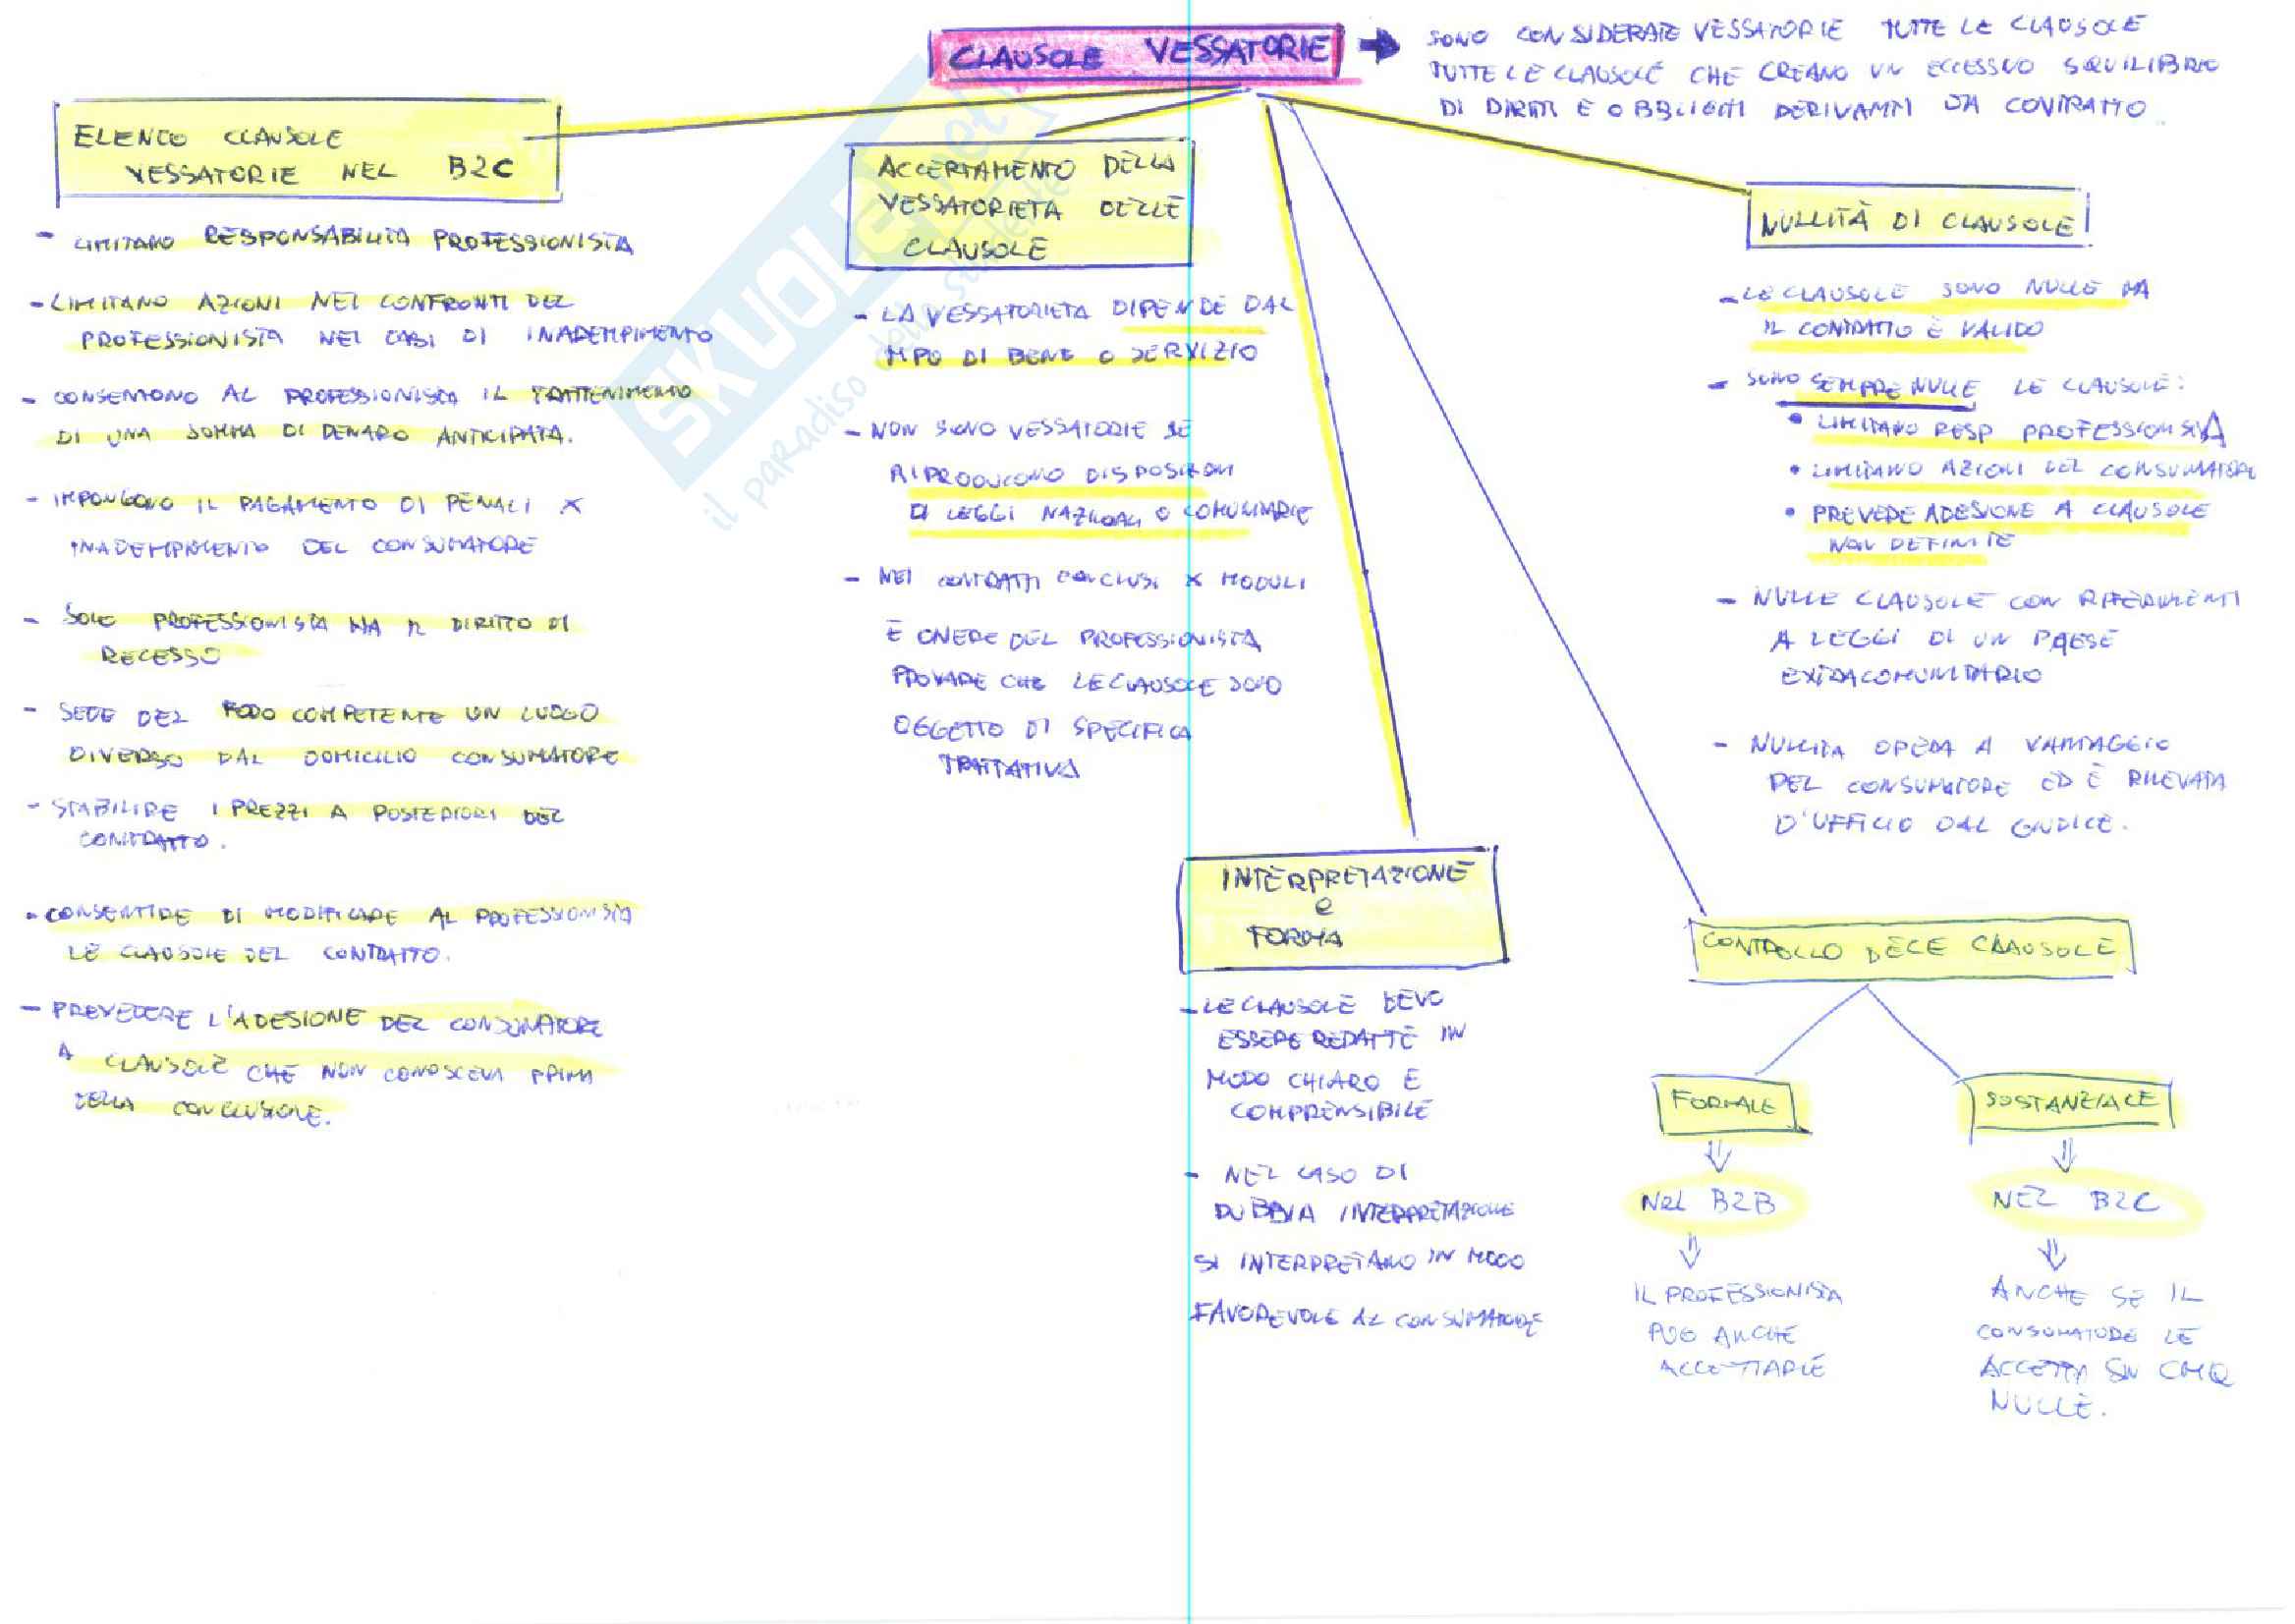 CLAUSOLE VESSATORIE
SONO CONSIDERATE VESSATORIE TUTTE LE CLAUSOLE
TUTTE LE CLAUSOLE CHE CREANO UN ECCESSIVO SQUILIBRIO
DI DIRITTI E OBBLIGHI DERIVANTI DA CONTRATTO
ELENCO CLAUSOLE
VESSATORIE NEL B2C
- LIMITANO RESPONSABILITÀ PROFESSIONISTA
- LIMITANO AZIONI NEI CONFRONTI DEL
PROFESSIONISTA NEI CASI DI INADEMPIMENTO
- CONSENTONO AL PROFESSIONISTA IL TRATTENIMENTO
DI UNA SOMMA DI DENARO ANTICIPATA.
- IMPONGONO IL PAGAMENTO DI PENALI X
INADEMPIMENTO DEL CONSUMATORE
- SOLO PROFESSIONISTA HA IL DIRITTO DI
RECESSO
- SEDE DEL FORO COMPETENTE UN LUOGO
DIVERSO DAL DOMICILIO CONSUMATORE
- STABILIRE I PREZZI A POSTERIORI DEL
CONTRATTO.
- CONSENTIRE DI MODIFICARE AL PROFESSIONISTA
LE CLAUSOLE DEL CONTRATTO.
- PREVEDERE L'ADESIONE DEL CONSUMATORE
A CLAUSOLE CHE NON CONOSCEVA PRIMA
DELLA CONCLUSIONE.
ACCERTAMENTO DELLA
VESSATORIETÀ DELLE
CLAUSOLE
- LA VESSATORIETÀ DIPENDE DAL
TIPO DI BENE O SERVIZIO
- NON SONO VESSATORIE SE
RIPRODUCONO DISPOSIZIONI
DI LEGGI NAZIONALI O COMUNITARIE
- NEI CONTRATTI CONCLUSI X MODULI
È ONERE DEL PROFESSIONISTA
PROVARE CHE LE CLAUSOLE SONO
OGGETTO DI SPECIFICA
TRATTATIVA
INTERPRETAZIONE
e
FORMA
- LE CLAUSOLE DEVO
ESSERE REDATTE IN
MODO CHIARO E
COMPRENSIBILE
- NEL CASO DI
DUBBIA INTERPRETAZIONE
SI INTERPRETANO IN MODO
FAVOREVOLE AL CONSUMATORE
NULLITÀ DI CLAUSOLE
- LE CLAUSOLE SONO NULLE MA
IL CONTRATTO È VALIDO
- SONO SEMPRE NULLE LE CLAUSOLE:
• LIMITANO RESP PROFESSIONISTA
• LIMITANO AZIONI DEL CONSUMATORE
• PREVEDE ADESIONE A CLAUSOLE
NON DEFINITE
- NULLE CLAUSOLE CON RIFERIMENTI
A LEGGI DI UN PAESE
EXTRACOMUNITARIO
- NULLITÀ OPERA A VANTAGGIO
DEL CONSUMATORE ED È RILEVATA
D'UFFICIO DAL GIUDICE.
CONTROLLO DELLE CLAUSOLE
FORMALE
NEL B2B
IL PROFESSIONISTA
PUÒ ANCHE
ACCETTARLE
SOSTANZIALE
NEL B2C
ANCHE SE IL
CONSUMATORE LE
ACCETTA SN CMQ
NULLE.
SKUOLA.net
il paradiso dello studente